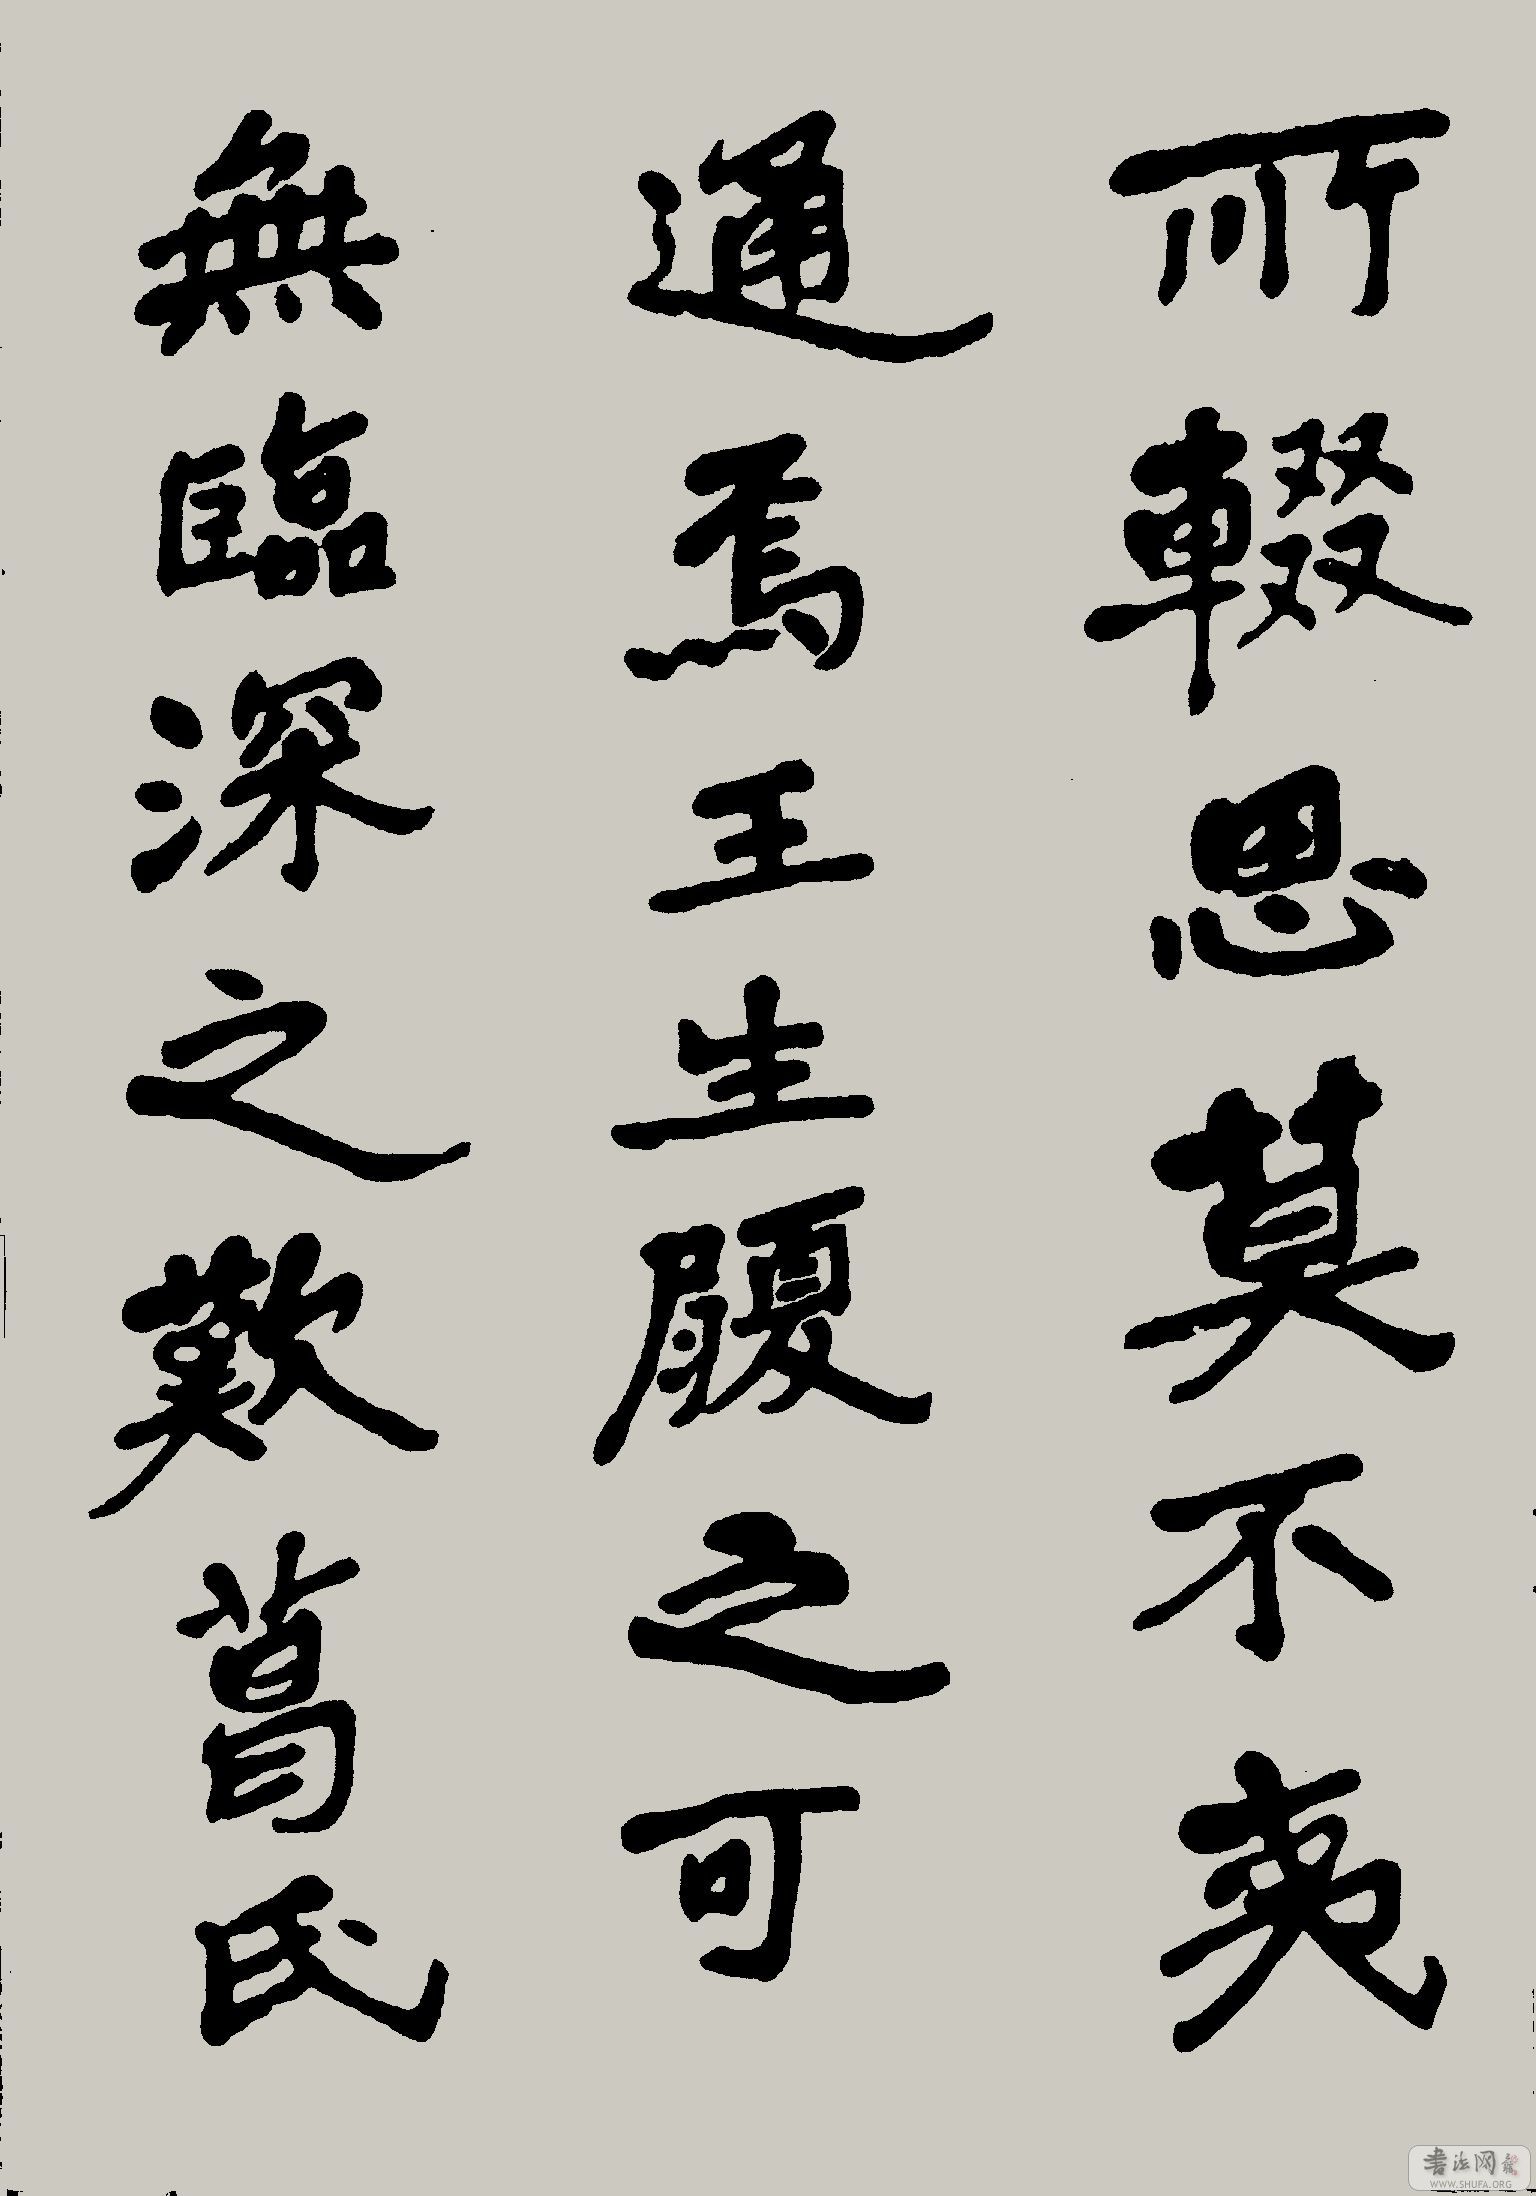 所輟思莫不夷
通焉王生履之可
無臨深之歎葛氏
書法网
WWW.SHUFA.ORG